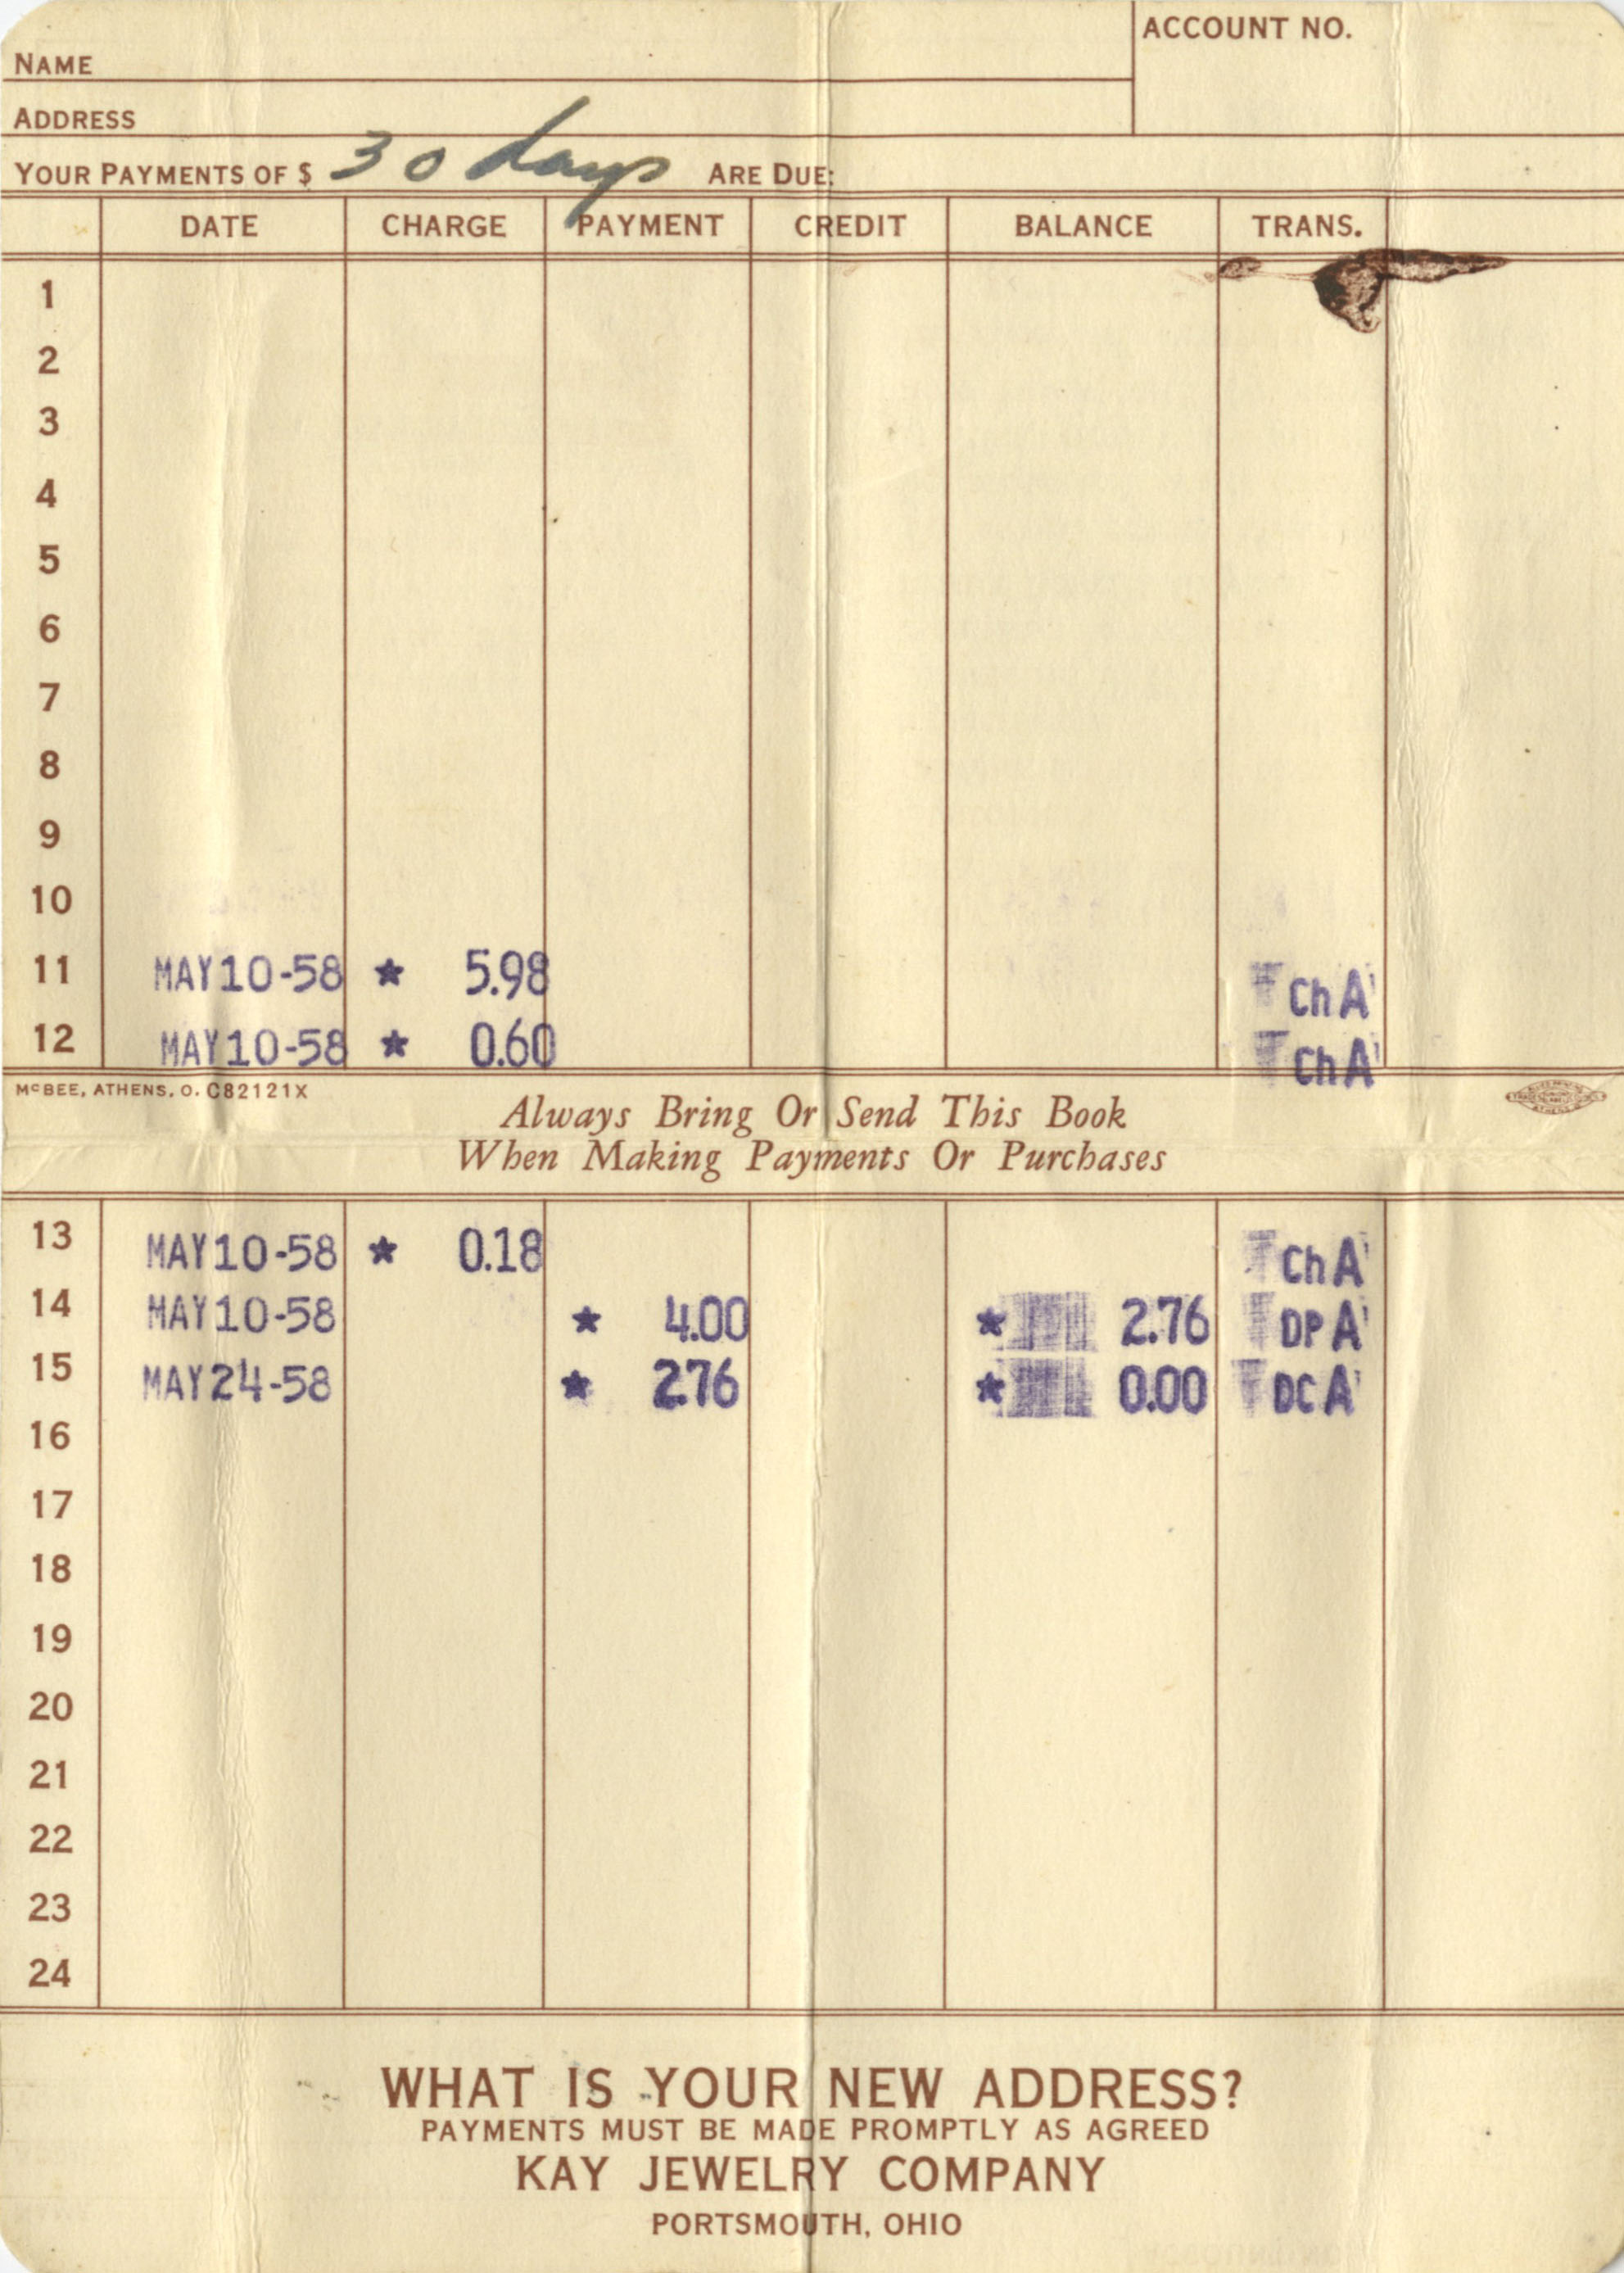 ACCOUNT NO.
NAME
ADDRESS
YOUR PAYMENTS OF $ 30 days ARE DUE:
DATE CHARGE PAYMENT CREDIT BALANCE TRANS.
1
2
3
4
5
6
7
8
9
10
11 MAY 10-58 * 5.98 Ch A
12 MAY 10-58 * 0.60 Ch A
McBEE, ATHENS, O. C82121X
Always Bring Or Send This Book
When Making Payments Or Purchases
13 MAY 10-58 * 0.18 Ch A
14 MAY 10-58 * 4.00 * 2.76 DP A
15 MAY 24-58 * 2.76 * 0.00 DC A
16
17
18
19
20
21
22
23
24
WHAT IS YOUR NEW ADDRESS?
PAYMENTS MUST BE MADE PROMPTLY AS AGREED
KAY JEWELRY COMPANY
PORTSMOUTH, OHIO